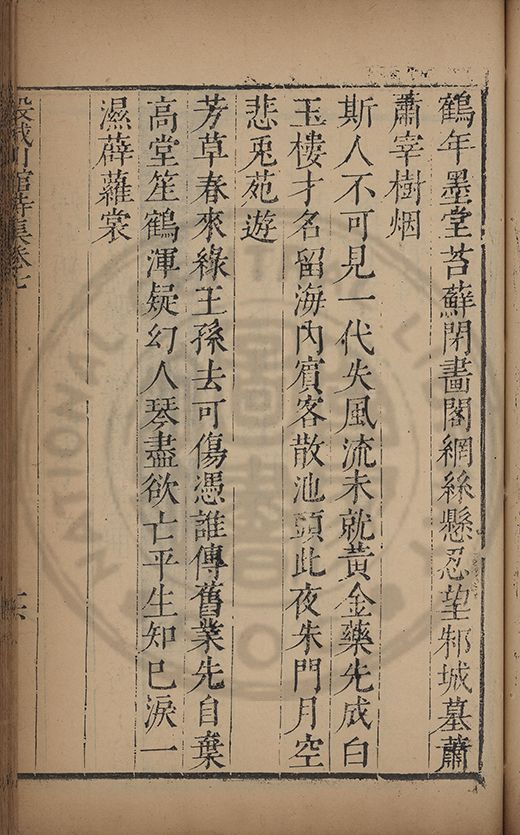 鶴年墨堂苔蘚閉畵閣網絲懸忍望邾城墓蕭
蕭宰樹烟
斯人不可見一代失風流未就黃金藥先成白
玉樓才名留海內賓客散池頭此夜朱門月空
悲兎苑遊
芳草春來綠王孫去可傷憑誰傳舊業先自棄
高堂笙鶴渾疑幻人琴盡欲亡平生知已淚一
濕薜蘿裳
集卷七